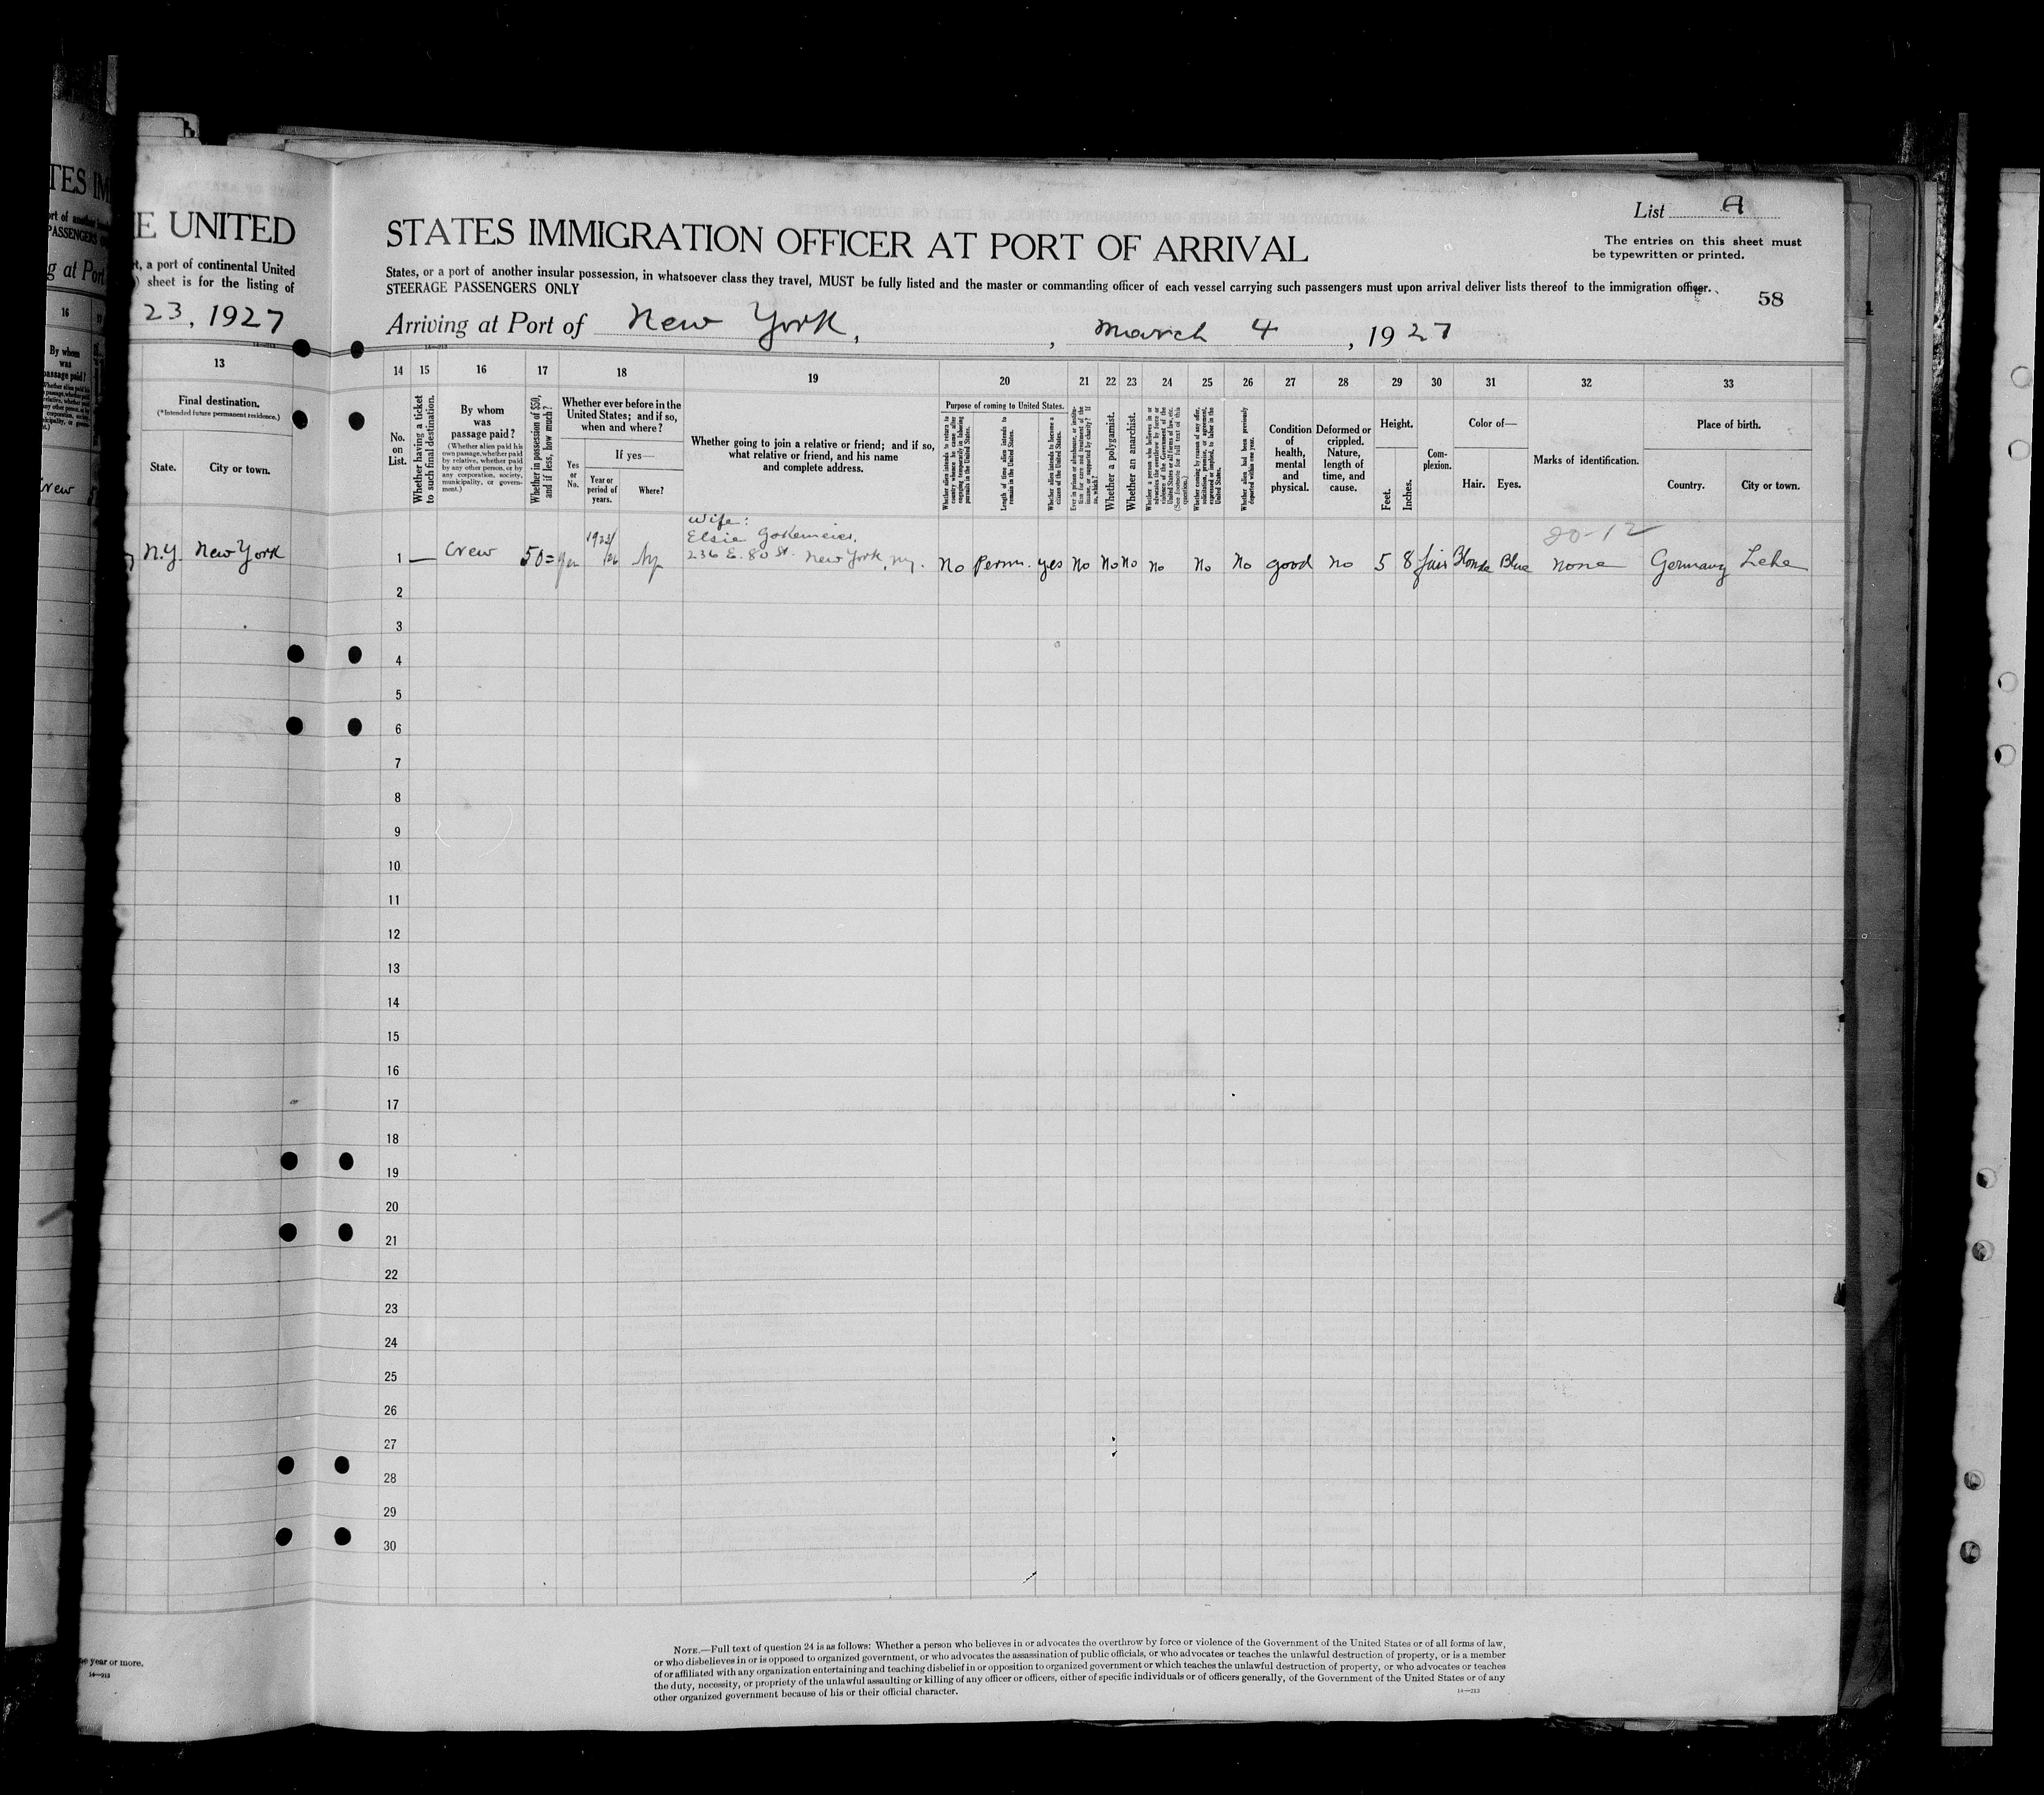 TES IM
ort of another insular
PASSENGERS
g at Port
16
By whom
was
passage paid?
E UNITED
t, a port of continental United
) sheet is for the listing of
23, 1927
14—213
13
Final destination.
(*Intended future permanent residence.)
State. City or town.
N.Y. New York
year or more.
14—213
List A
STATES IMMIGRATION OFFICER AT PORT OF ARRIVAL
The entries on this sheet must
be typewritten or printed.
States, or a port of another insular possession, in whatsoever class they travel, MUST be fully listed and the master or commanding officer of each vessel carrying such passengers must upon arrival deliver lists thereof to the immigration officer.
STEERAGE PASSENGERS ONLY
58
Arriving at Port of New York, , March 4, 1927
14—213
14 15 16 17 18 19 20 21 22 23 24 25 26 27 28 29 30 31 32 33
No.
on
List.
Whether having a ticket
to such final destination.
By whom
was
passage paid?
(Whether alien paid his
own passage, whether paid
by relative, whether paid
by any other person, or by
any corporation, society,
municipality, or govern-
ment.)
Whether in possession of $50,
and if less, how much?
Whether ever before in the
United States; and if so,
when and where?
Yes
or
No.
If yes—
Year or
period of
years.
Where?
Whether going to join a relative or friend; and if so,
what relative or friend, and his name
and complete address.
Purpose of coming to United States.
Whether alien intends to return to
country whence he came after
engaging temporarily in laboring
pursuits in the United States.
Length of time alien intends to
remain in the United States.
Whether alien intends to become a
citizen of the United States.
Ever in prison or almshouse, or institu-
tion for care and treatment of the
insane, or supported by charity? If
so, which?
Whether a polygamist.
Whether an anarchist.
Whether a person who believes in or
advocates the overthrow by force or
violence of the Government of the
United States or all forms of law, etc.
(See footnote for full text of this
question.)
Whether coming by reason of any offer,
solicitation, promise, or agreement,
expressed or implied, to labor in the
United States.
Whether alien had been previously
deported within one year.
Condition
of
health,
mental
and
physical.
Deformed or
crippled.
Nature,
length of
time, and
cause.
Height.
Feet.
Inches.
Com-
plexion.
Color of—
Hair. Eyes.
Marks of identification.
Place of birth.
Country. City or town.
Wife:
Elsie Gokemeier.
236 E. 80 St. New York, Ny.
20-12
1 — Crew 50= yes 1923/ /26 Ny No Perm. yes No No No No No No good No 5 8 fair Blonde Blue none Germany Lehe
2
3
4
5
6
7
8
9
10
11
12
13
14
15
16
17
18
19
20
21
22
23
24
25
26
27
28
29
30
NOTE.—Full text of question 24 is as follows: Whether a person who believes in or advocates the overthrow by force or violence of the Government of the United States or of all forms of law,
or who disbelieves in or is opposed to organized government, or who advocates the assassination of public officials, or who advocates or teaches the unlawful destruction of property, or is a member
of or affiliated with any organization entertaining and teaching disbelief in or opposition to organized government or which teaches the unlawful destruction of property, or who advocates or teaches
the duty, necessity, or propriety of the unlawful assaulting or killing of any officer or officers, either of specific individuals or of officers generally, of the Government of the United States or of any
other organized government because of his or their official character.
14—213